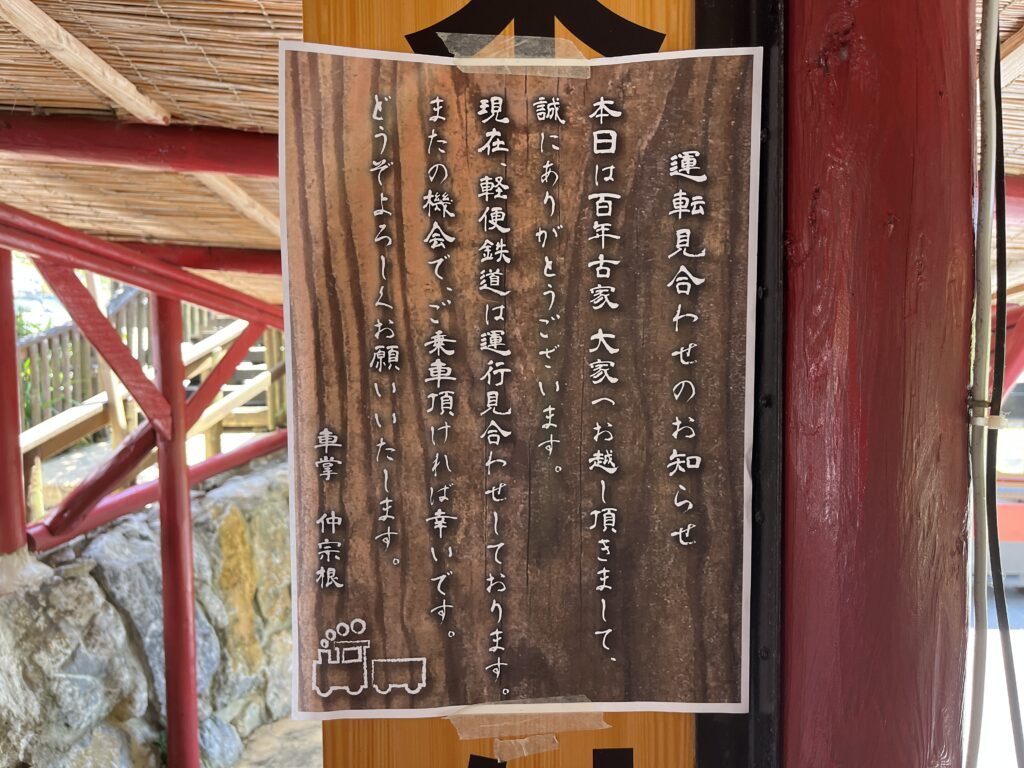 運転見合わせのお知らせ
本日は百年古家 大家へお越し頂きまして、
誠にありがとうございます。
現在、軽便鉄道は運行見合わせしております。
またの機会で、ご乗車頂ければ幸いです。
どうぞよろしくお願いいたします。
車掌 仲宗根